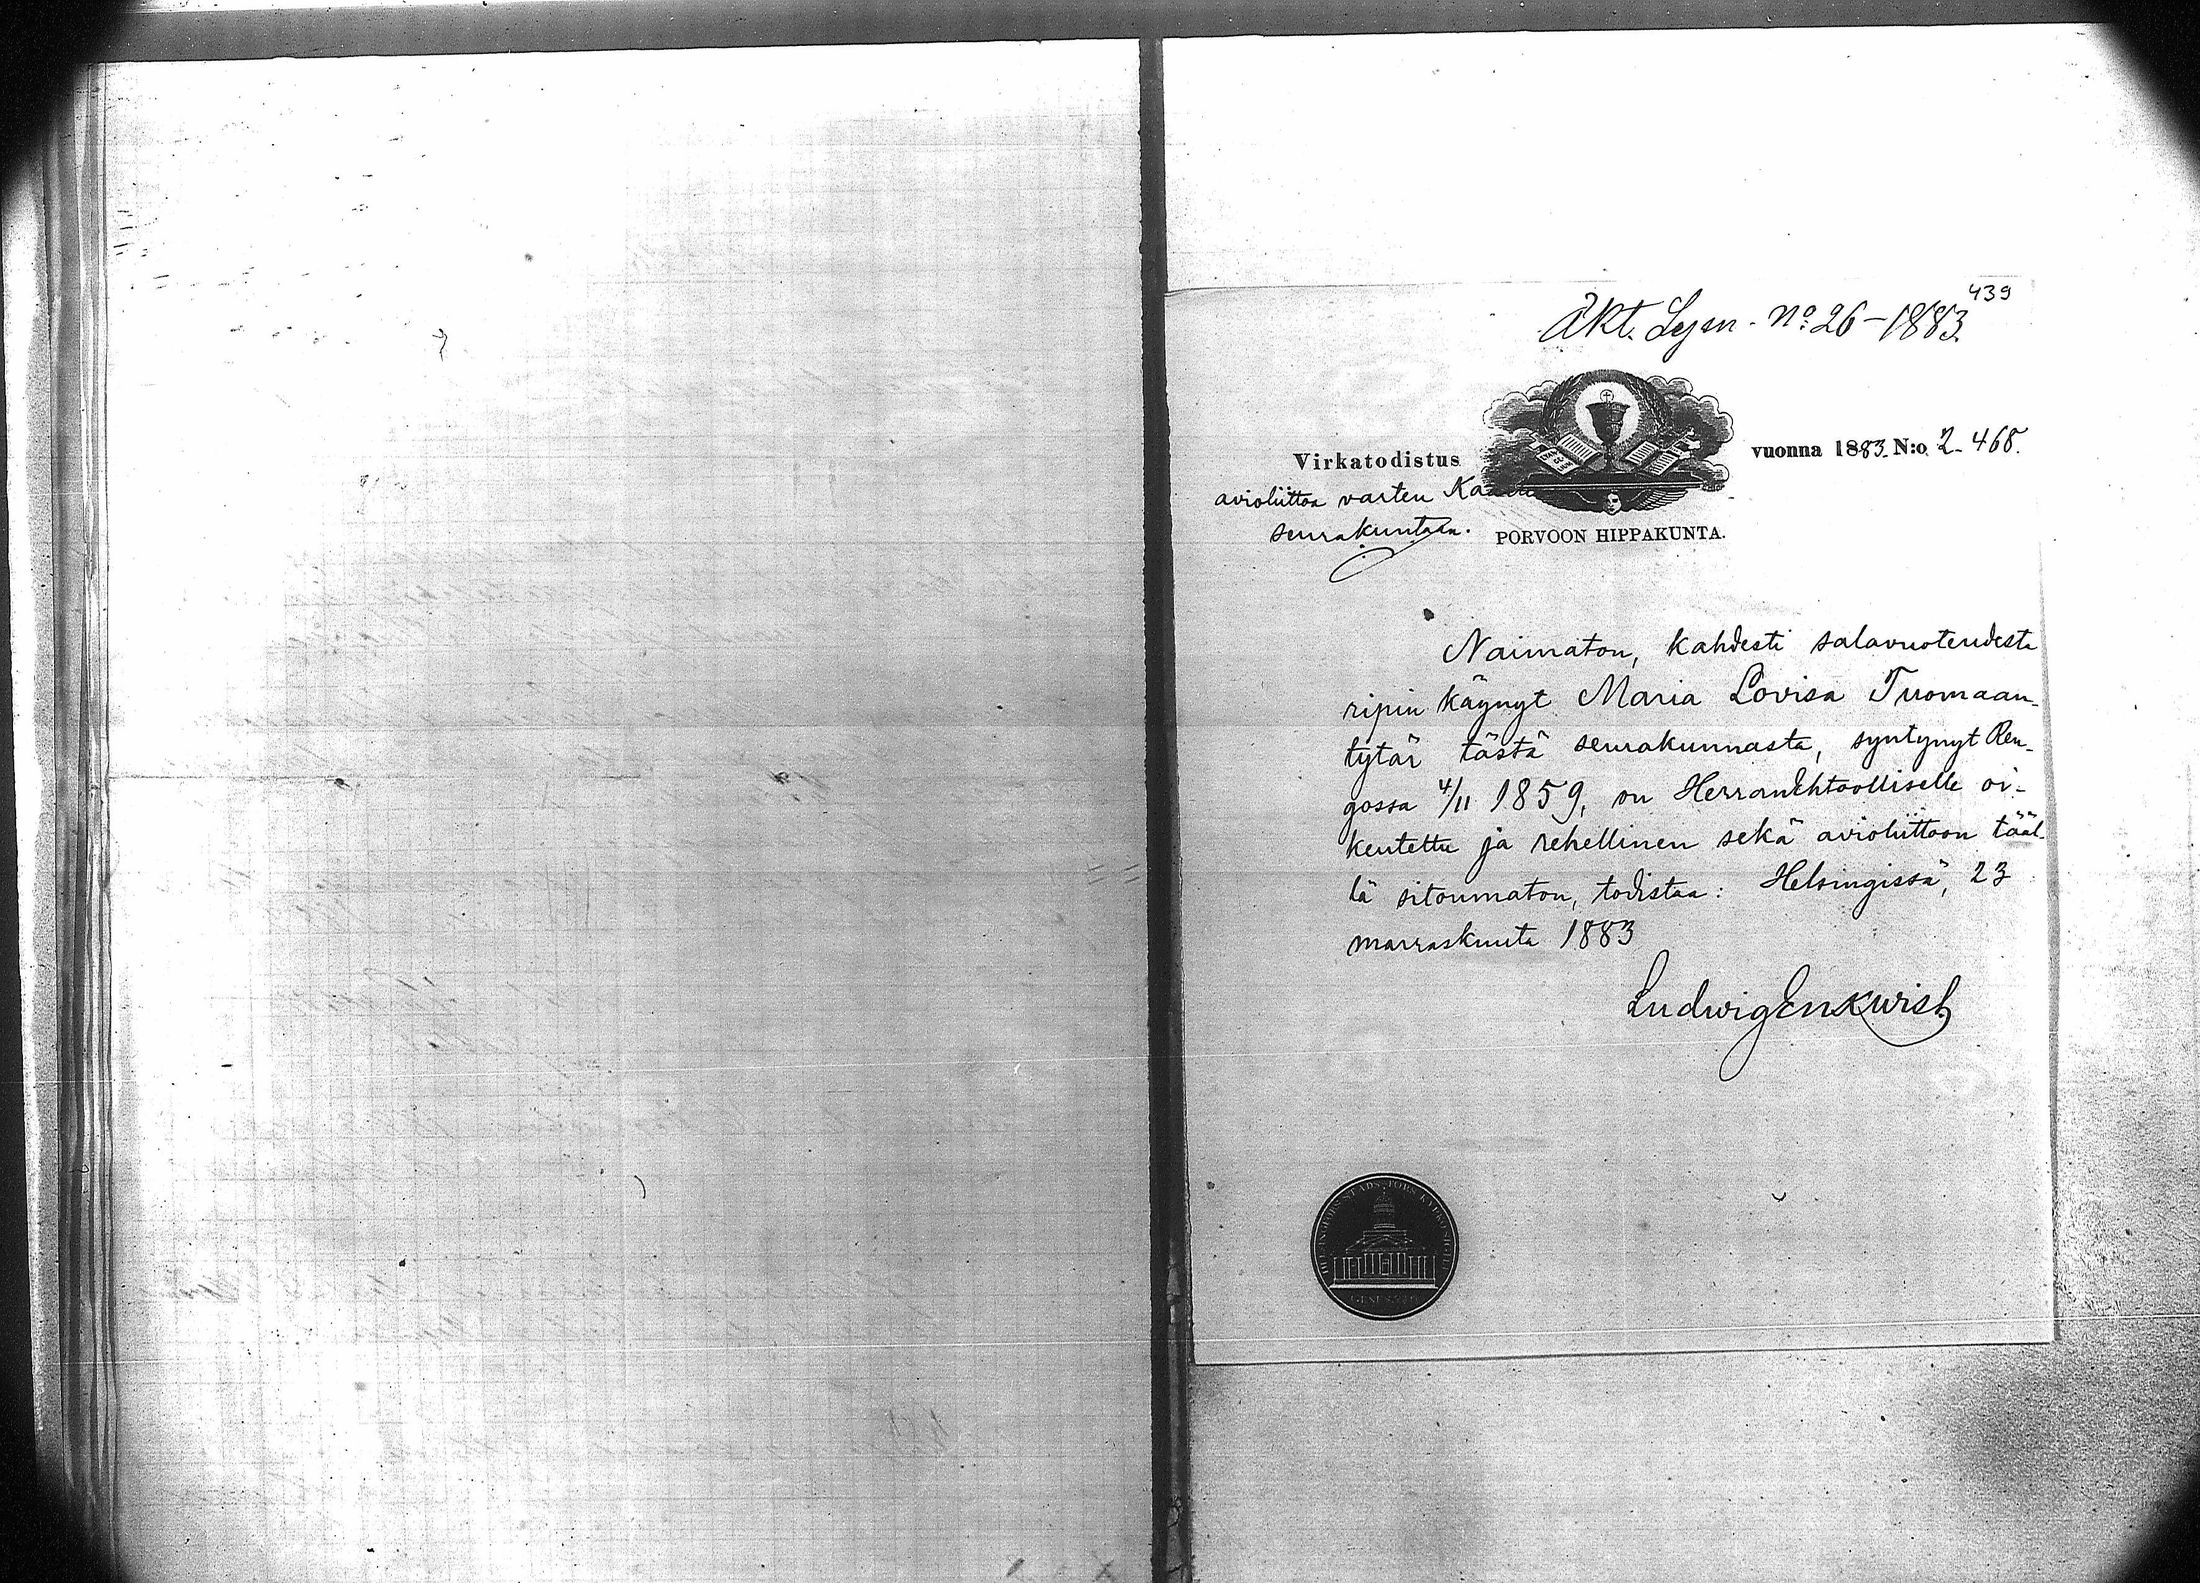 439
Äkt. Lysn. No: 26-1883.
Virkatodistus vuonna 1883 N:o 2468.
avioliittoa varten
seurakuntaan.
PORVOON HIPPAKUNTA.
Naimaton, kahdesti salavuoteudesta
ripin käynyt Maria Lovisa Tuomaan-
tytär tästä seurakunnasta, syntynyt Ren-
gossa 4/11 1859, on Herranehtoolliselle oi-
keutettu ja rehellinen sekä avioliittoon tääl-
lä sitoumaton, todistaa: Helsingissä, 23
marraskuuta 1883
Ludwig Enkwist